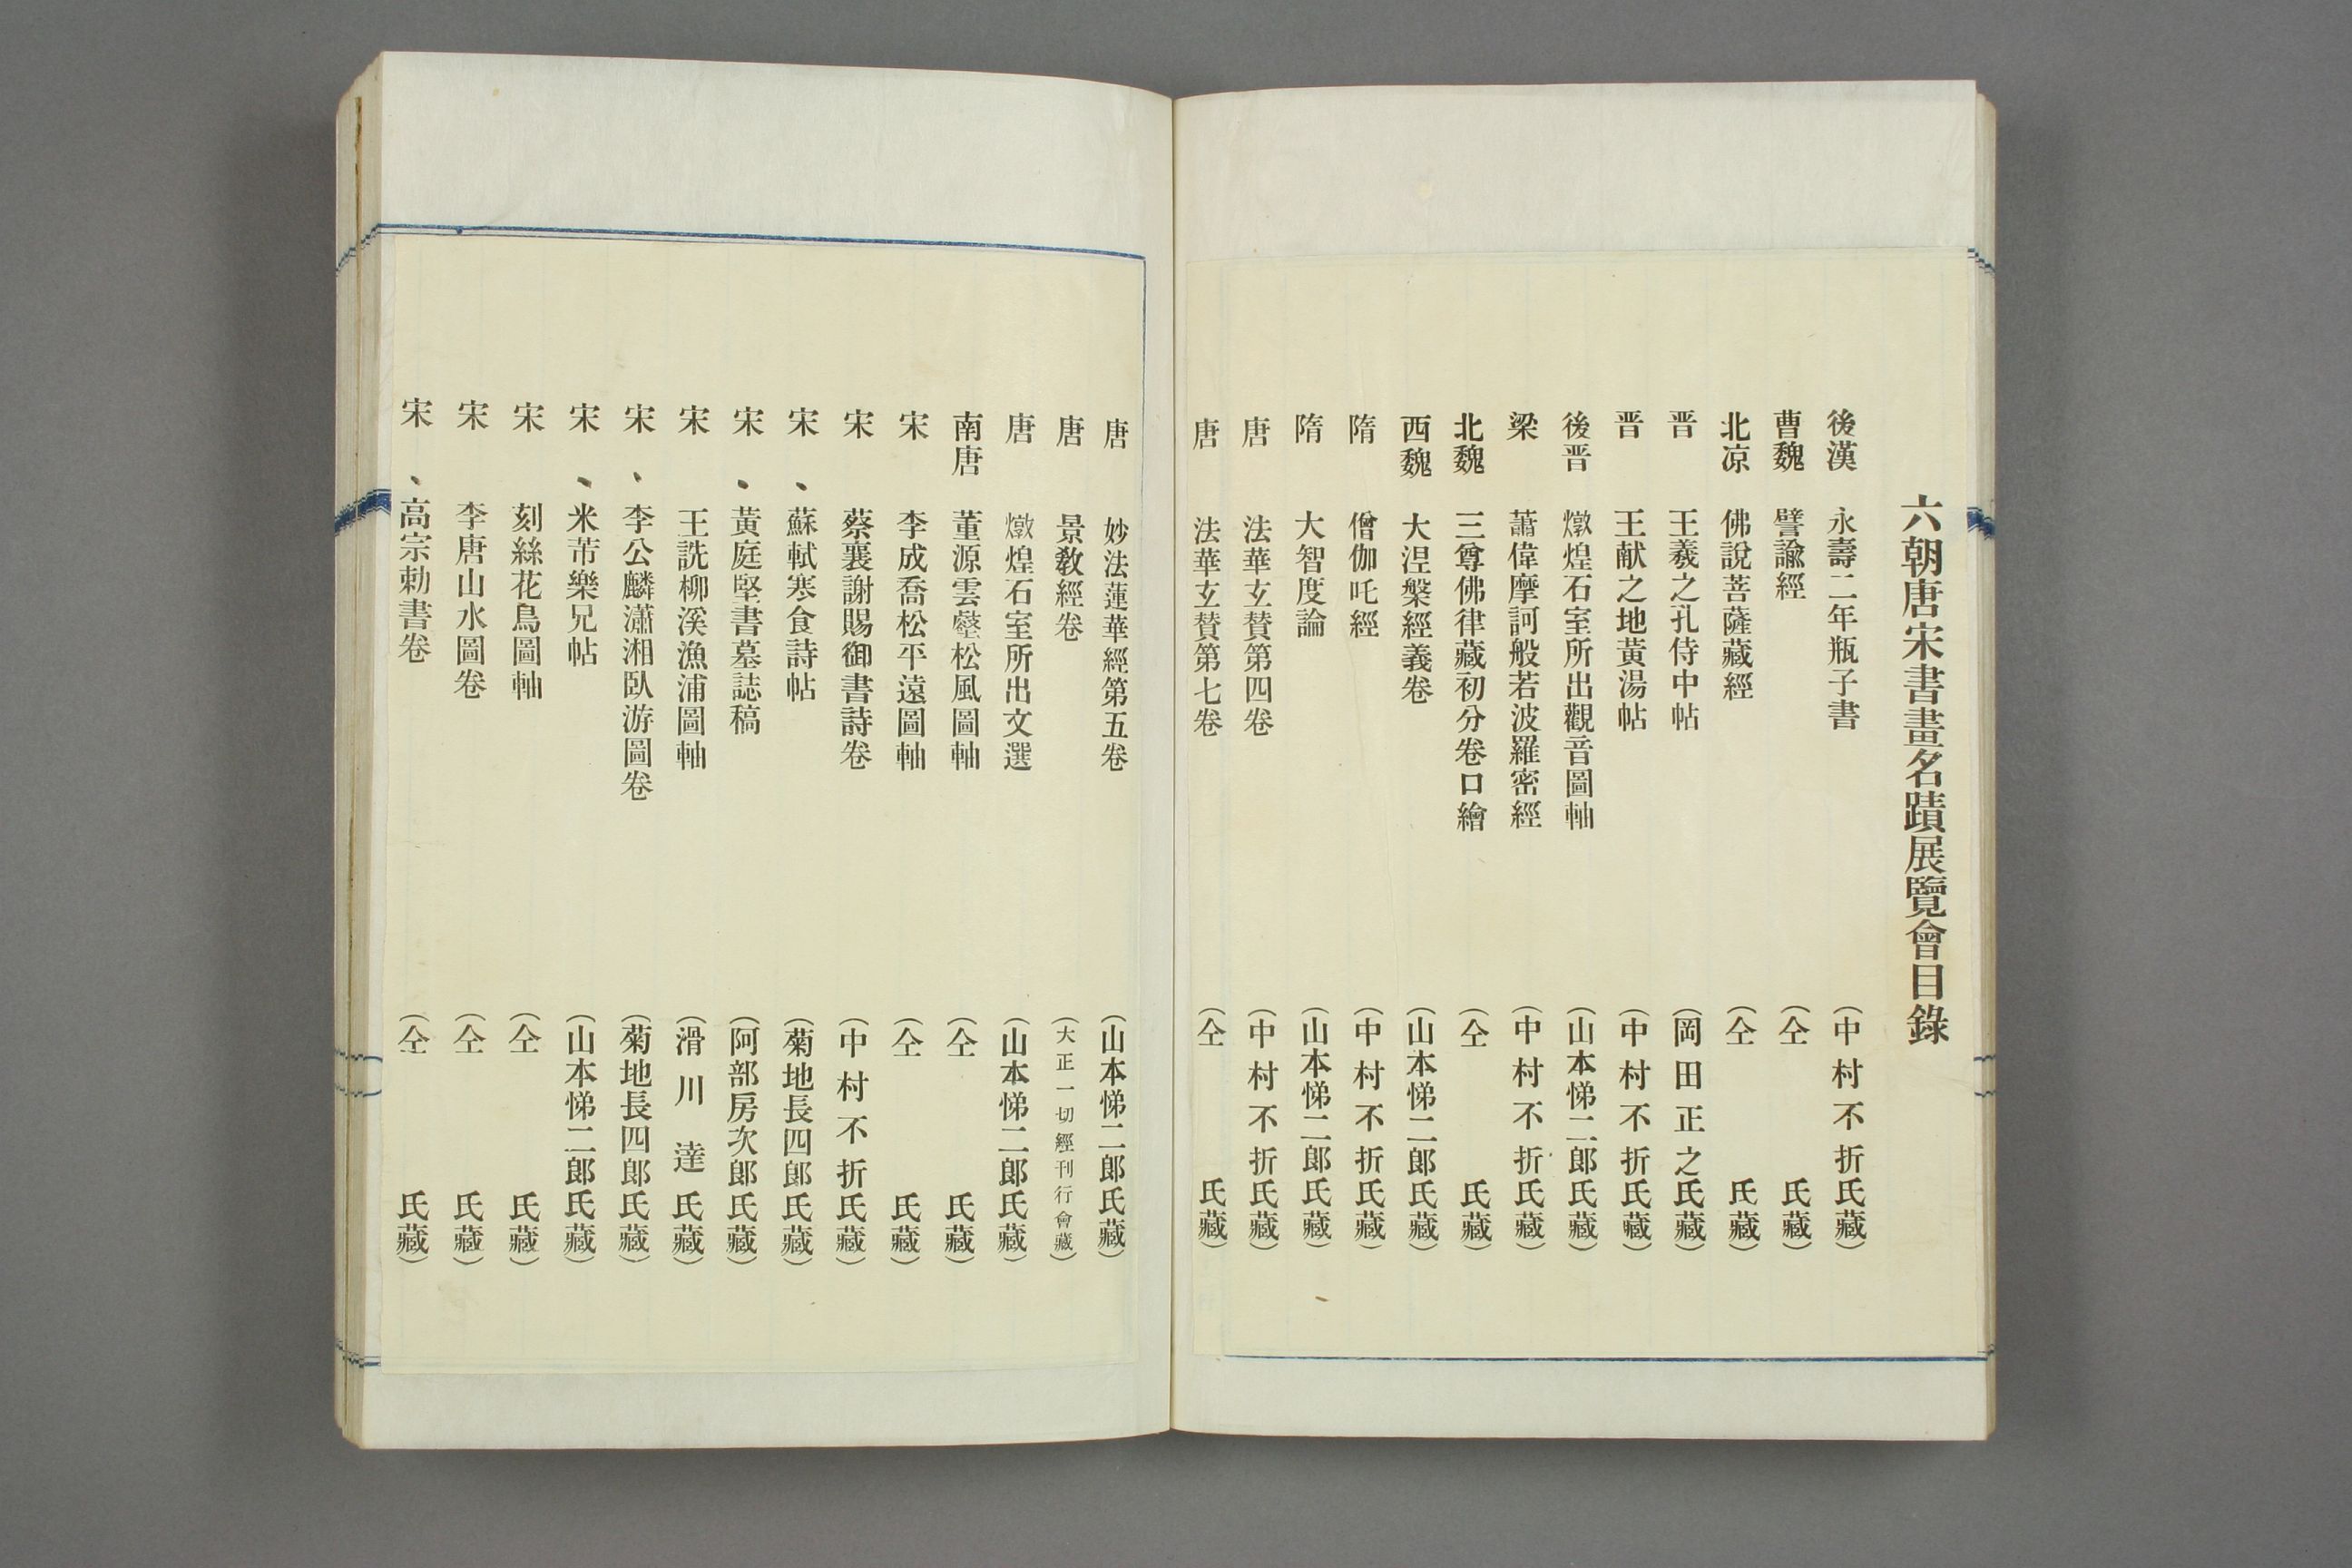 六朝唐宋書畫名蹟展覽會目錄
後漢　永壽二年瓶子書　（中村不折氏藏）
曹魏　譬諭經　（仝　氏藏）
北凉　佛說菩薩藏經　（仝　氏藏）
晋　王羲之孔侍中帖　（岡田正之氏藏）
晋　王献之地黃湯帖　（中村不折氏藏）
後晋　燉煌石室所出觀音圖軸　（山本悌二郎氏藏）
梁　蕭偉摩訶般若波羅密經　（中村不折氏藏）
北魏　三尊佛律藏初分卷口繪　（仝　氏藏）
西魏　大涅槃經義卷　（山本悌二郎氏藏）
隋　僧伽吒經　（中村不折氏藏）
隋　大智度論　（山本悌二郎氏藏）
唐　法華玄賛第四卷　（中村不折氏藏）
唐　法華玄賛第七卷　（仝　氏藏）
唐　妙法蓮華經第五卷　（山本悌二郎氏藏）
唐　景教經卷　（大正一切經刊行會藏）
唐　燉煌石室所出文選　（山本悌二郎氏藏）
南唐　董源雲壑松風圖軸　（仝　氏藏）
宋　李成喬松平遠圖軸　（仝　氏藏）
宋　蔡襄謝賜御書詩卷　（中村不折氏藏）
宋　、蘇軾寒食詩帖　（菊地長四郎氏藏）
宋　、黃庭堅書墓誌稿　（阿部房次郎氏藏）
宋　王詵柳溪漁浦圖軸　（滑川達氏藏）
宋　、李公麟瀟湘臥游圖卷　（菊地長四郎氏藏）
宋　、米芾樂兄帖　（山本悌二郎氏藏）
宋　刻絲花鳥圖軸　（仝　氏藏）
宋　李唐山水圖卷　（仝　氏藏）
宋　、高宗勅書卷　（仝　氏藏）